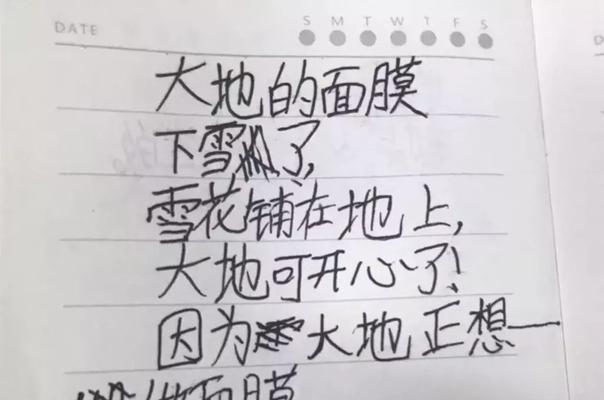 DATE
S M T W T F S
D
大地的面膜
下雪了,
雪花铺在地上,
大地可开心了!
因为大地正想一
做面膜